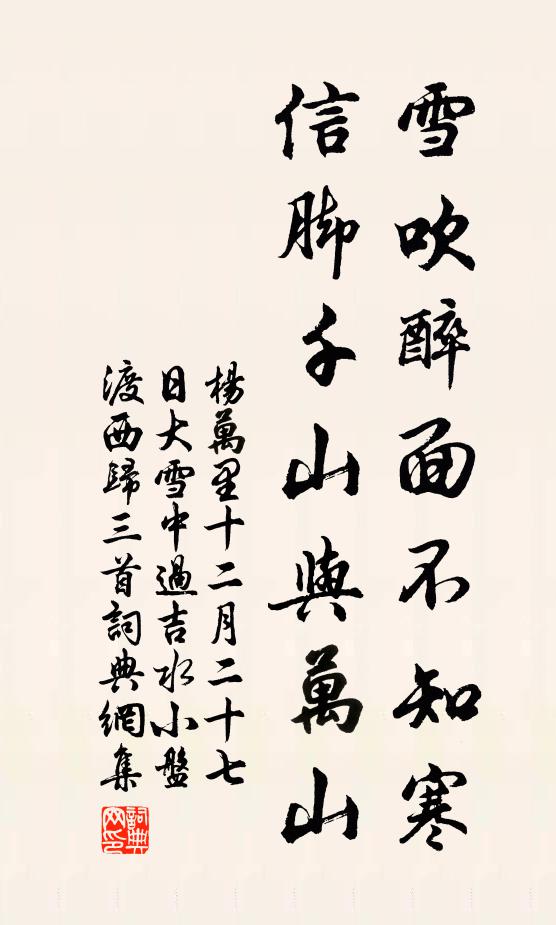 雪吹醉面不知寒
信脚千山與萬山
楊萬里十二月二十七
日大雪中過吉水小盤
渡西歸三首詞典網集
詞典
网印